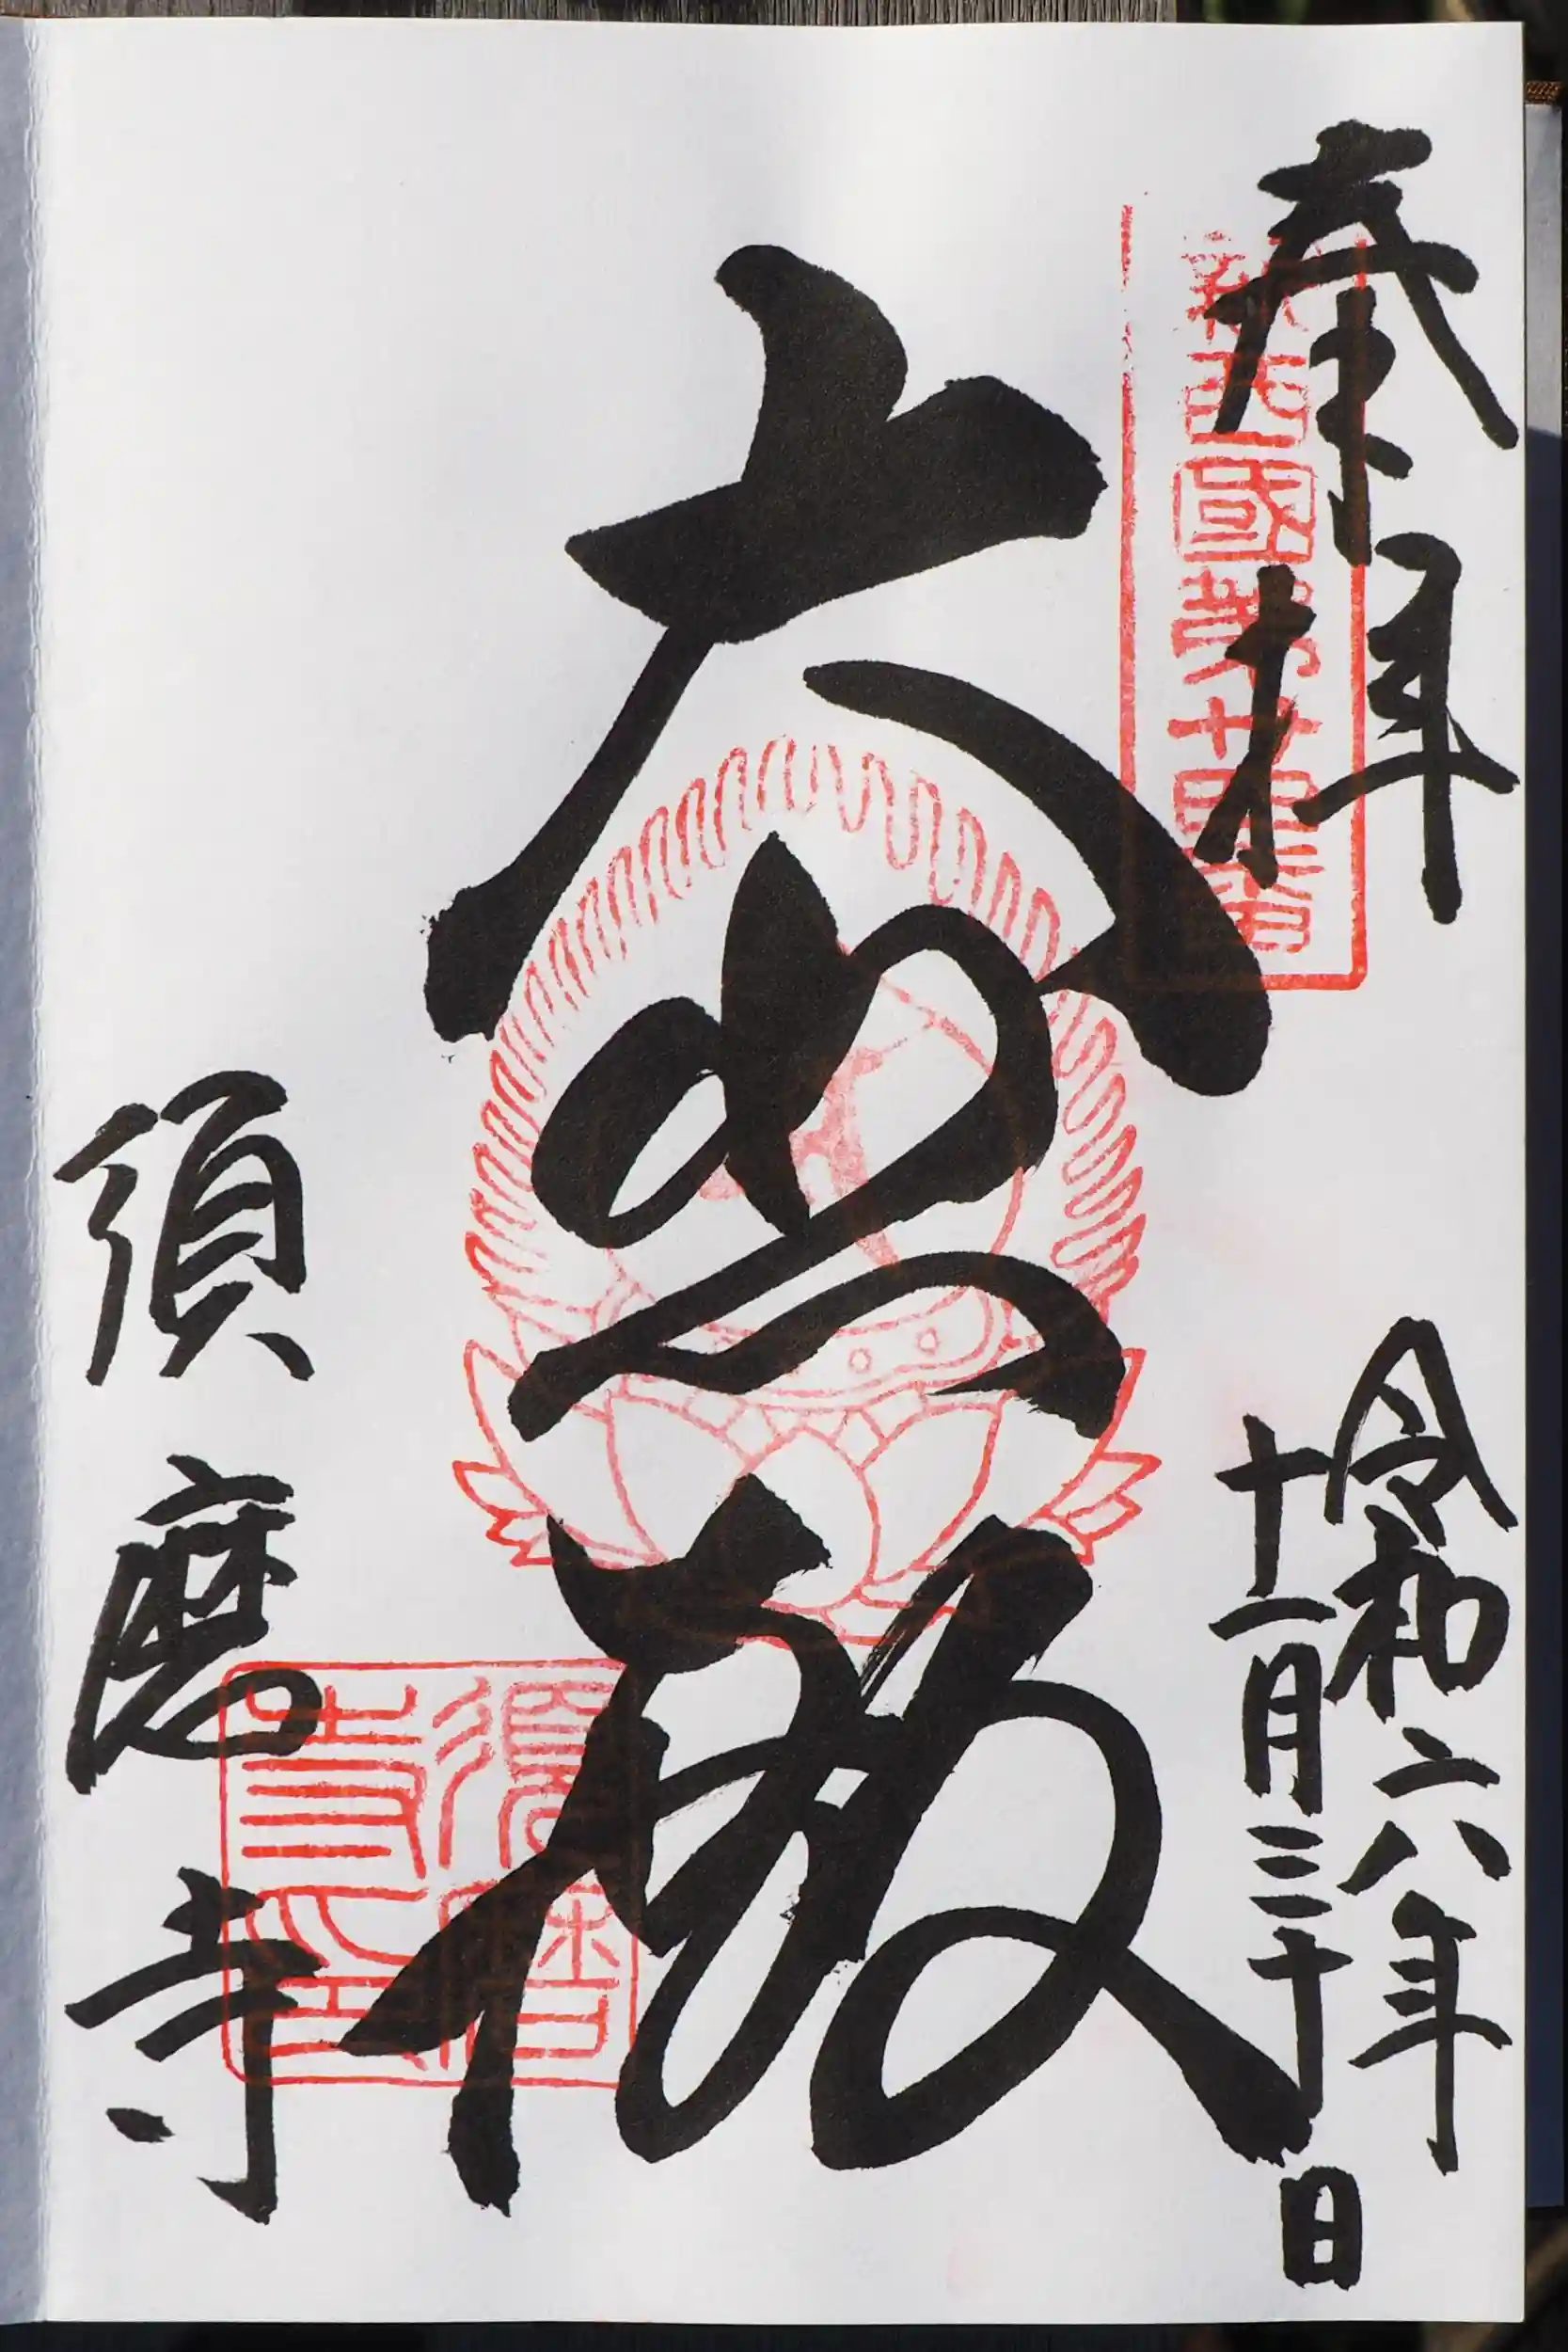 奉拝
新西國第廿四番
令和六年
十一月三十日
大悲殿
須磨寺
須磨寺印